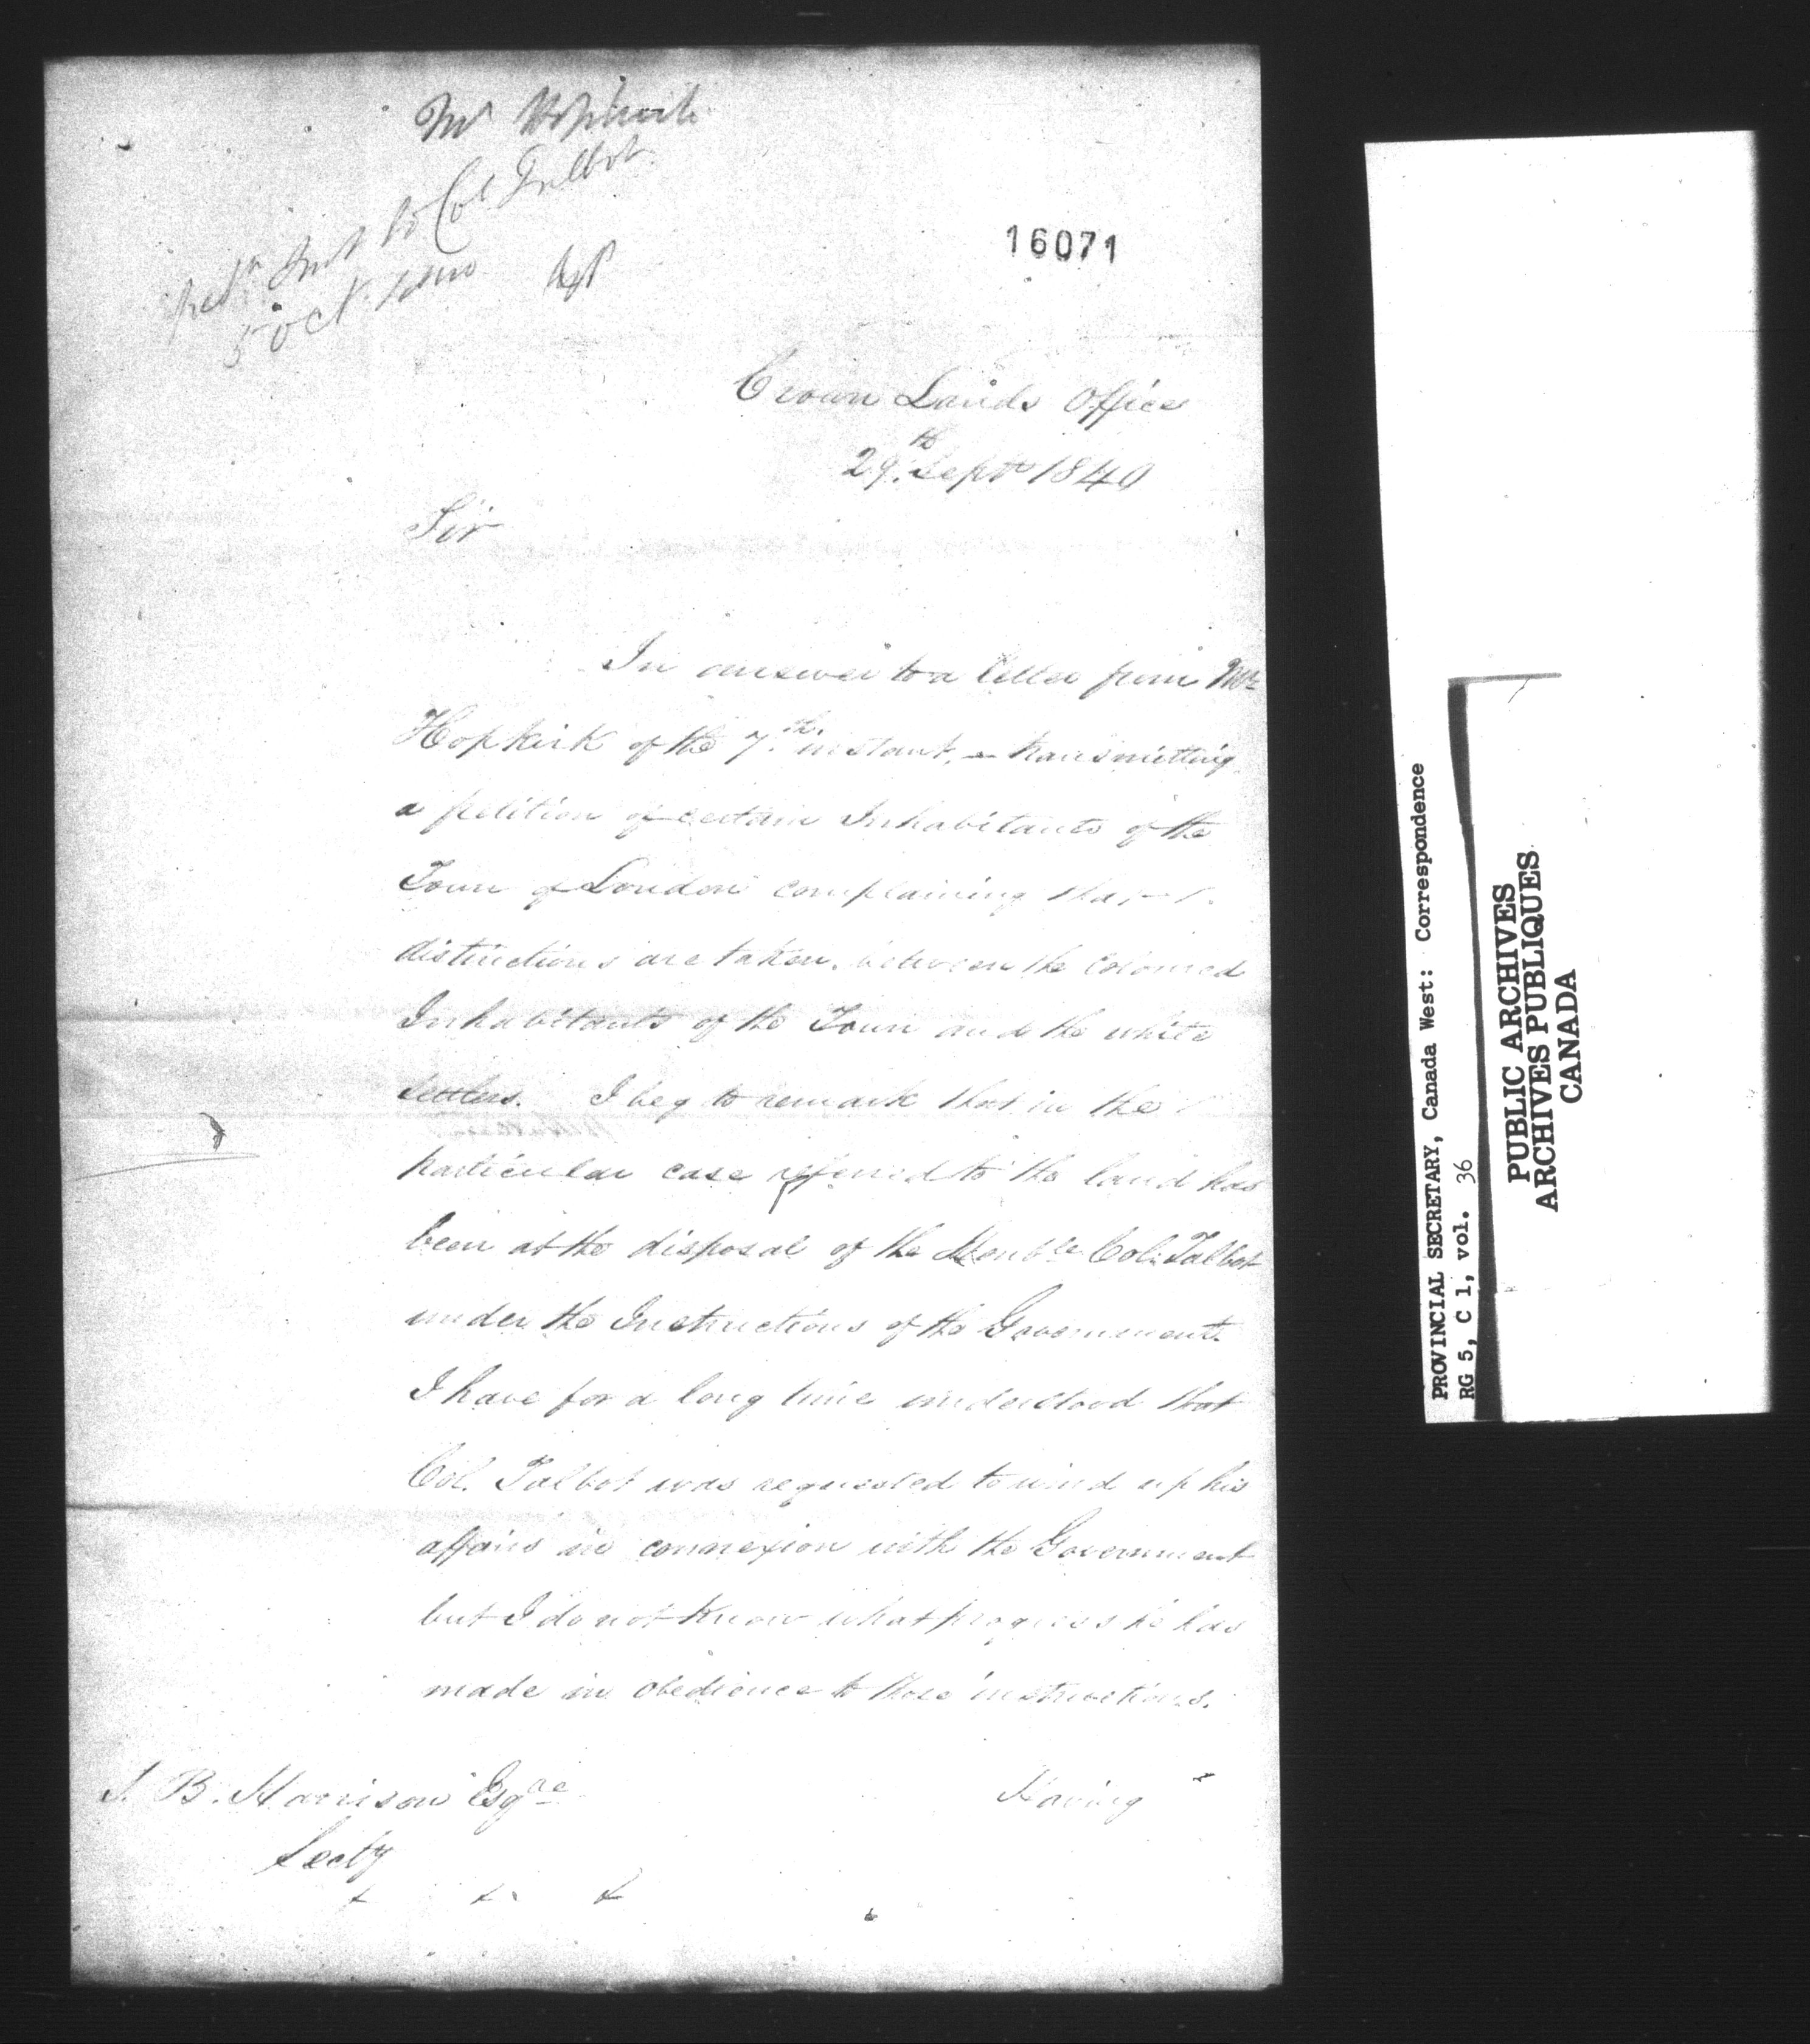 Mr Hopkirk
Petn Sent to Col Talbot
5 Oct. 1840
16071
Crown Lands Office
29th Septr 1840
Sir
In answer to a letter from Mr
Hopkirk of the 7th instant, transmitting
a petition of certain Inhabitants of the
Town of London complaining that
distinctions are taken, between the Coloured
Inhabitants of the Town and the white
settlers. I beg to remark that in the
particular case referred to the land has
been at the disposal of the Honble Col. Talbot
under the Instructions of the Government.
I have for a long time understood that
Col. Talbot was requested to wind up his
affairs in connexion with the Government
but I do not know what progress he has
made in obedience to those instructions.
S. B. Harrison Esqre
Secty
Having
PROVINCIAL SECRETARY, Canada West: Correspondence
RG 5, C 1, vol. 36
PUBLIC ARCHIVES
ARCHIVES PUBLIQUES
CANADA